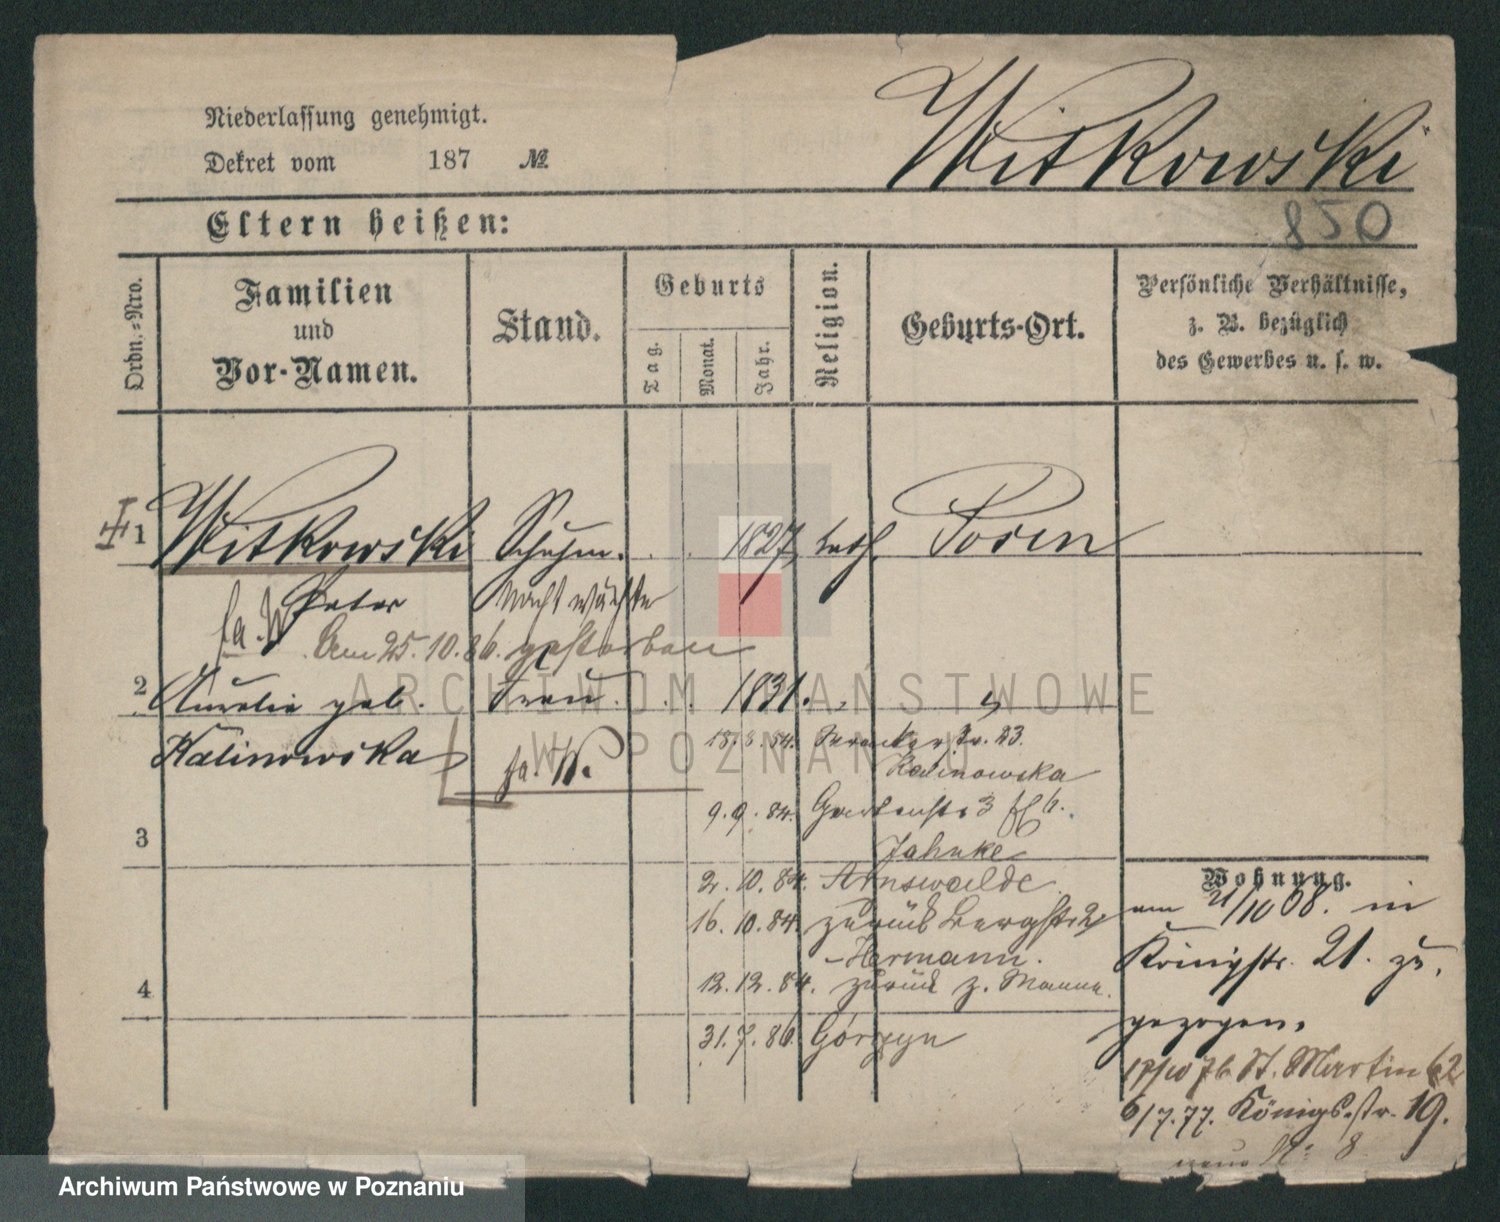 Niederlassung genehmigt.
Dekret vom 187 №
Witkowski
850
Eltern heißen:
Ordn.-Nro.
Familien
und
Vor-Namen.
Stand.
Geburts
Tag.
Monat.
Jahr.
Religion.
Geburts-Ort.
Persönliche Verhältnisse,
z. B. bezüglich
des Gewerbes u. s. w.
1 Witkowski Schuhm. 1827 kath. Posen
Peter Nachtwächter
Am 25.10.86. gestorben
2 Aurelie geb. Frau. 1831.
Kalinowska
18.8.84. 23.
Kalinowska
9.9.84. Gartenstr 3
3
Jahnke
2.10.84. Arnswalde
16.10.84. zurück Bergstr 2
Hermann.
12.12.84. zurück z. Manne.
4
31.7.86. Górczyn
Wohnung.
am 21/10 68. in
Königstr. 21. zu
gezogen.
17/10 76 St. Martin 62
6/7.77. Königsstr. 19.
neue N: 8
ARCHIWUM PAŃSTWOWE
W POZNANIU
Archiwum Państwowe w Poznaniu